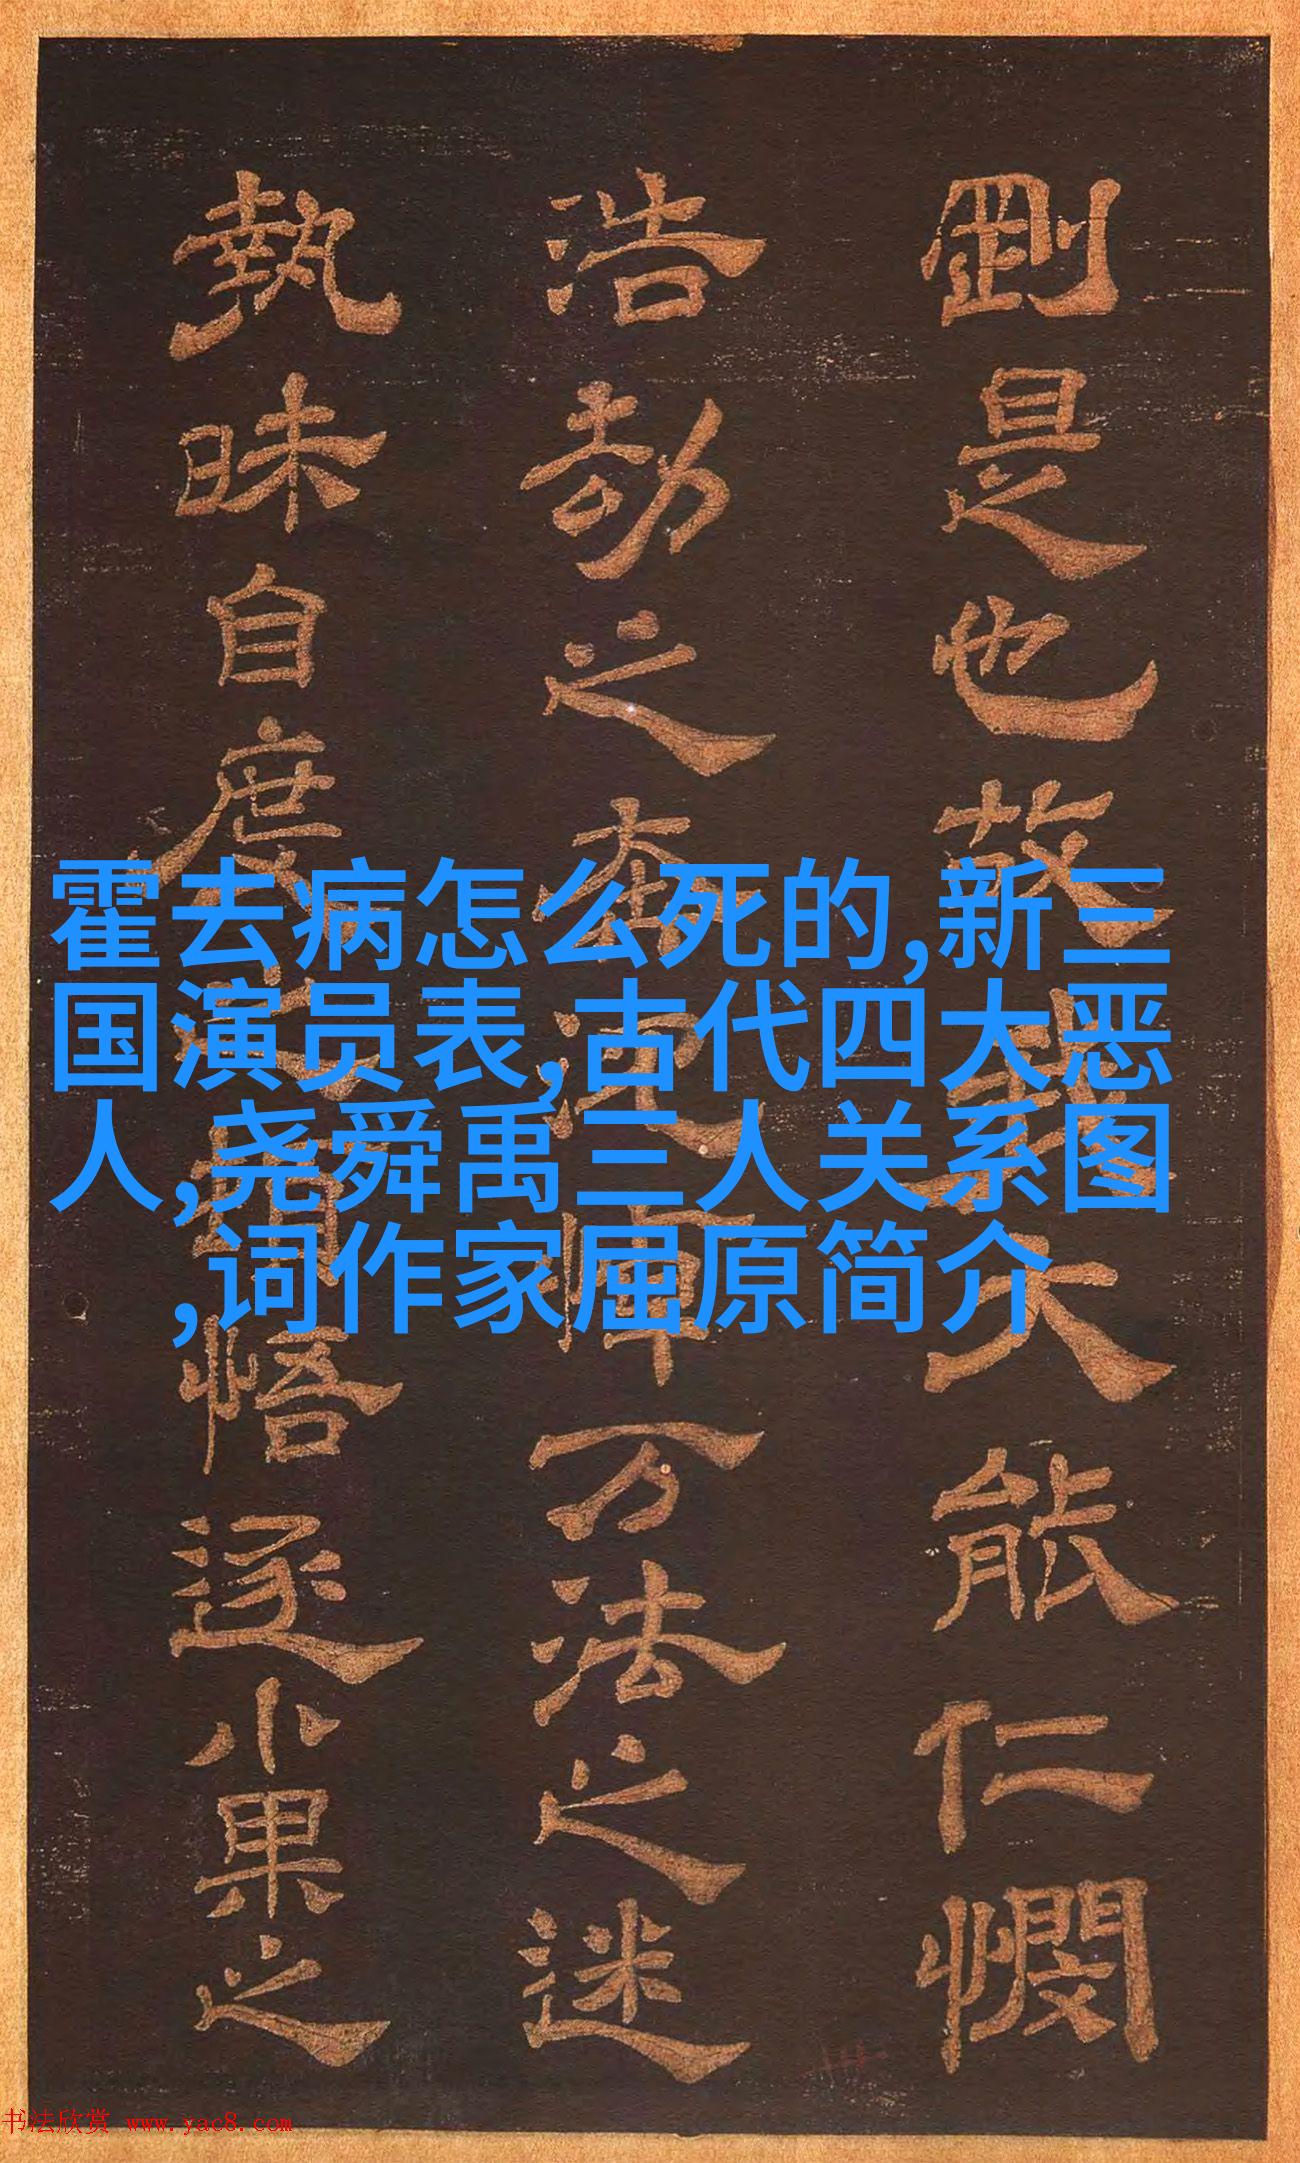 剛是也故我大能仁憫
浩劫之奔沉悼万法之迷
執昧自度之頓悟逐小果之
霍去病怎么死的,新三
国演员表,古代四大恶
人,尧舜禹三人关系图
,词作家屈原简介
书法欣赏 www.yac8.com